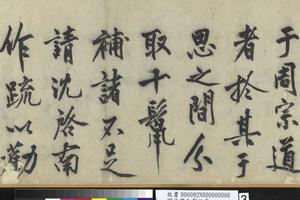 于周宗道
者於其于
思之間分
取十鬣
補諸不足
請沈啓南
作疏以勸
故書 000092N000000000